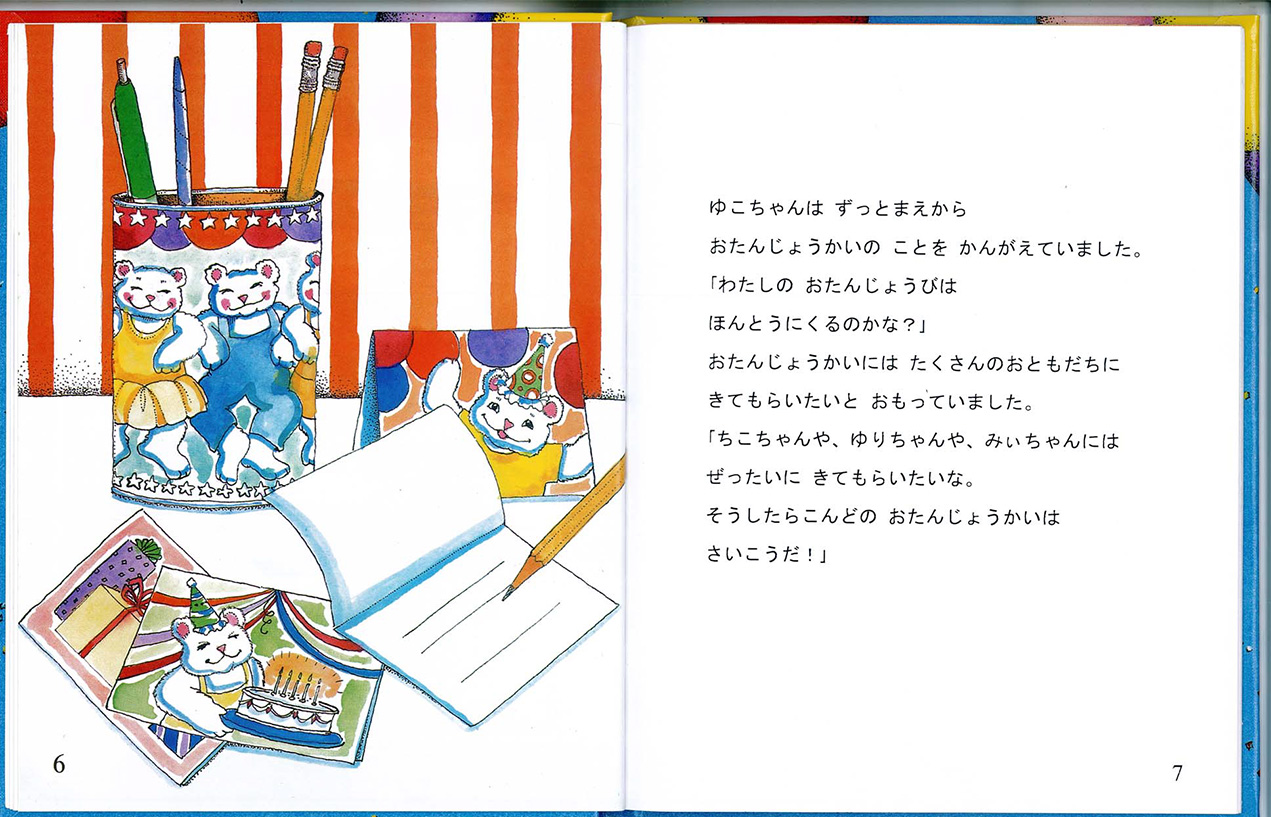 6
ゆこちゃんは ずっとまえから
おたんじょうかいの ことを かんがえていました。
「わたしの おたんじょうびは
ほんとうにくるのかな？」
おたんじょうかいには たくさんのおともだちに
きてもらいたいと おもっていました。
「ちこちゃんや、ゆりちゃんや、みぃちゃんには
ぜったいに きてもらいたいな。
そうしたらこんどの おたんじょうかいは
さいこうだ！」
7